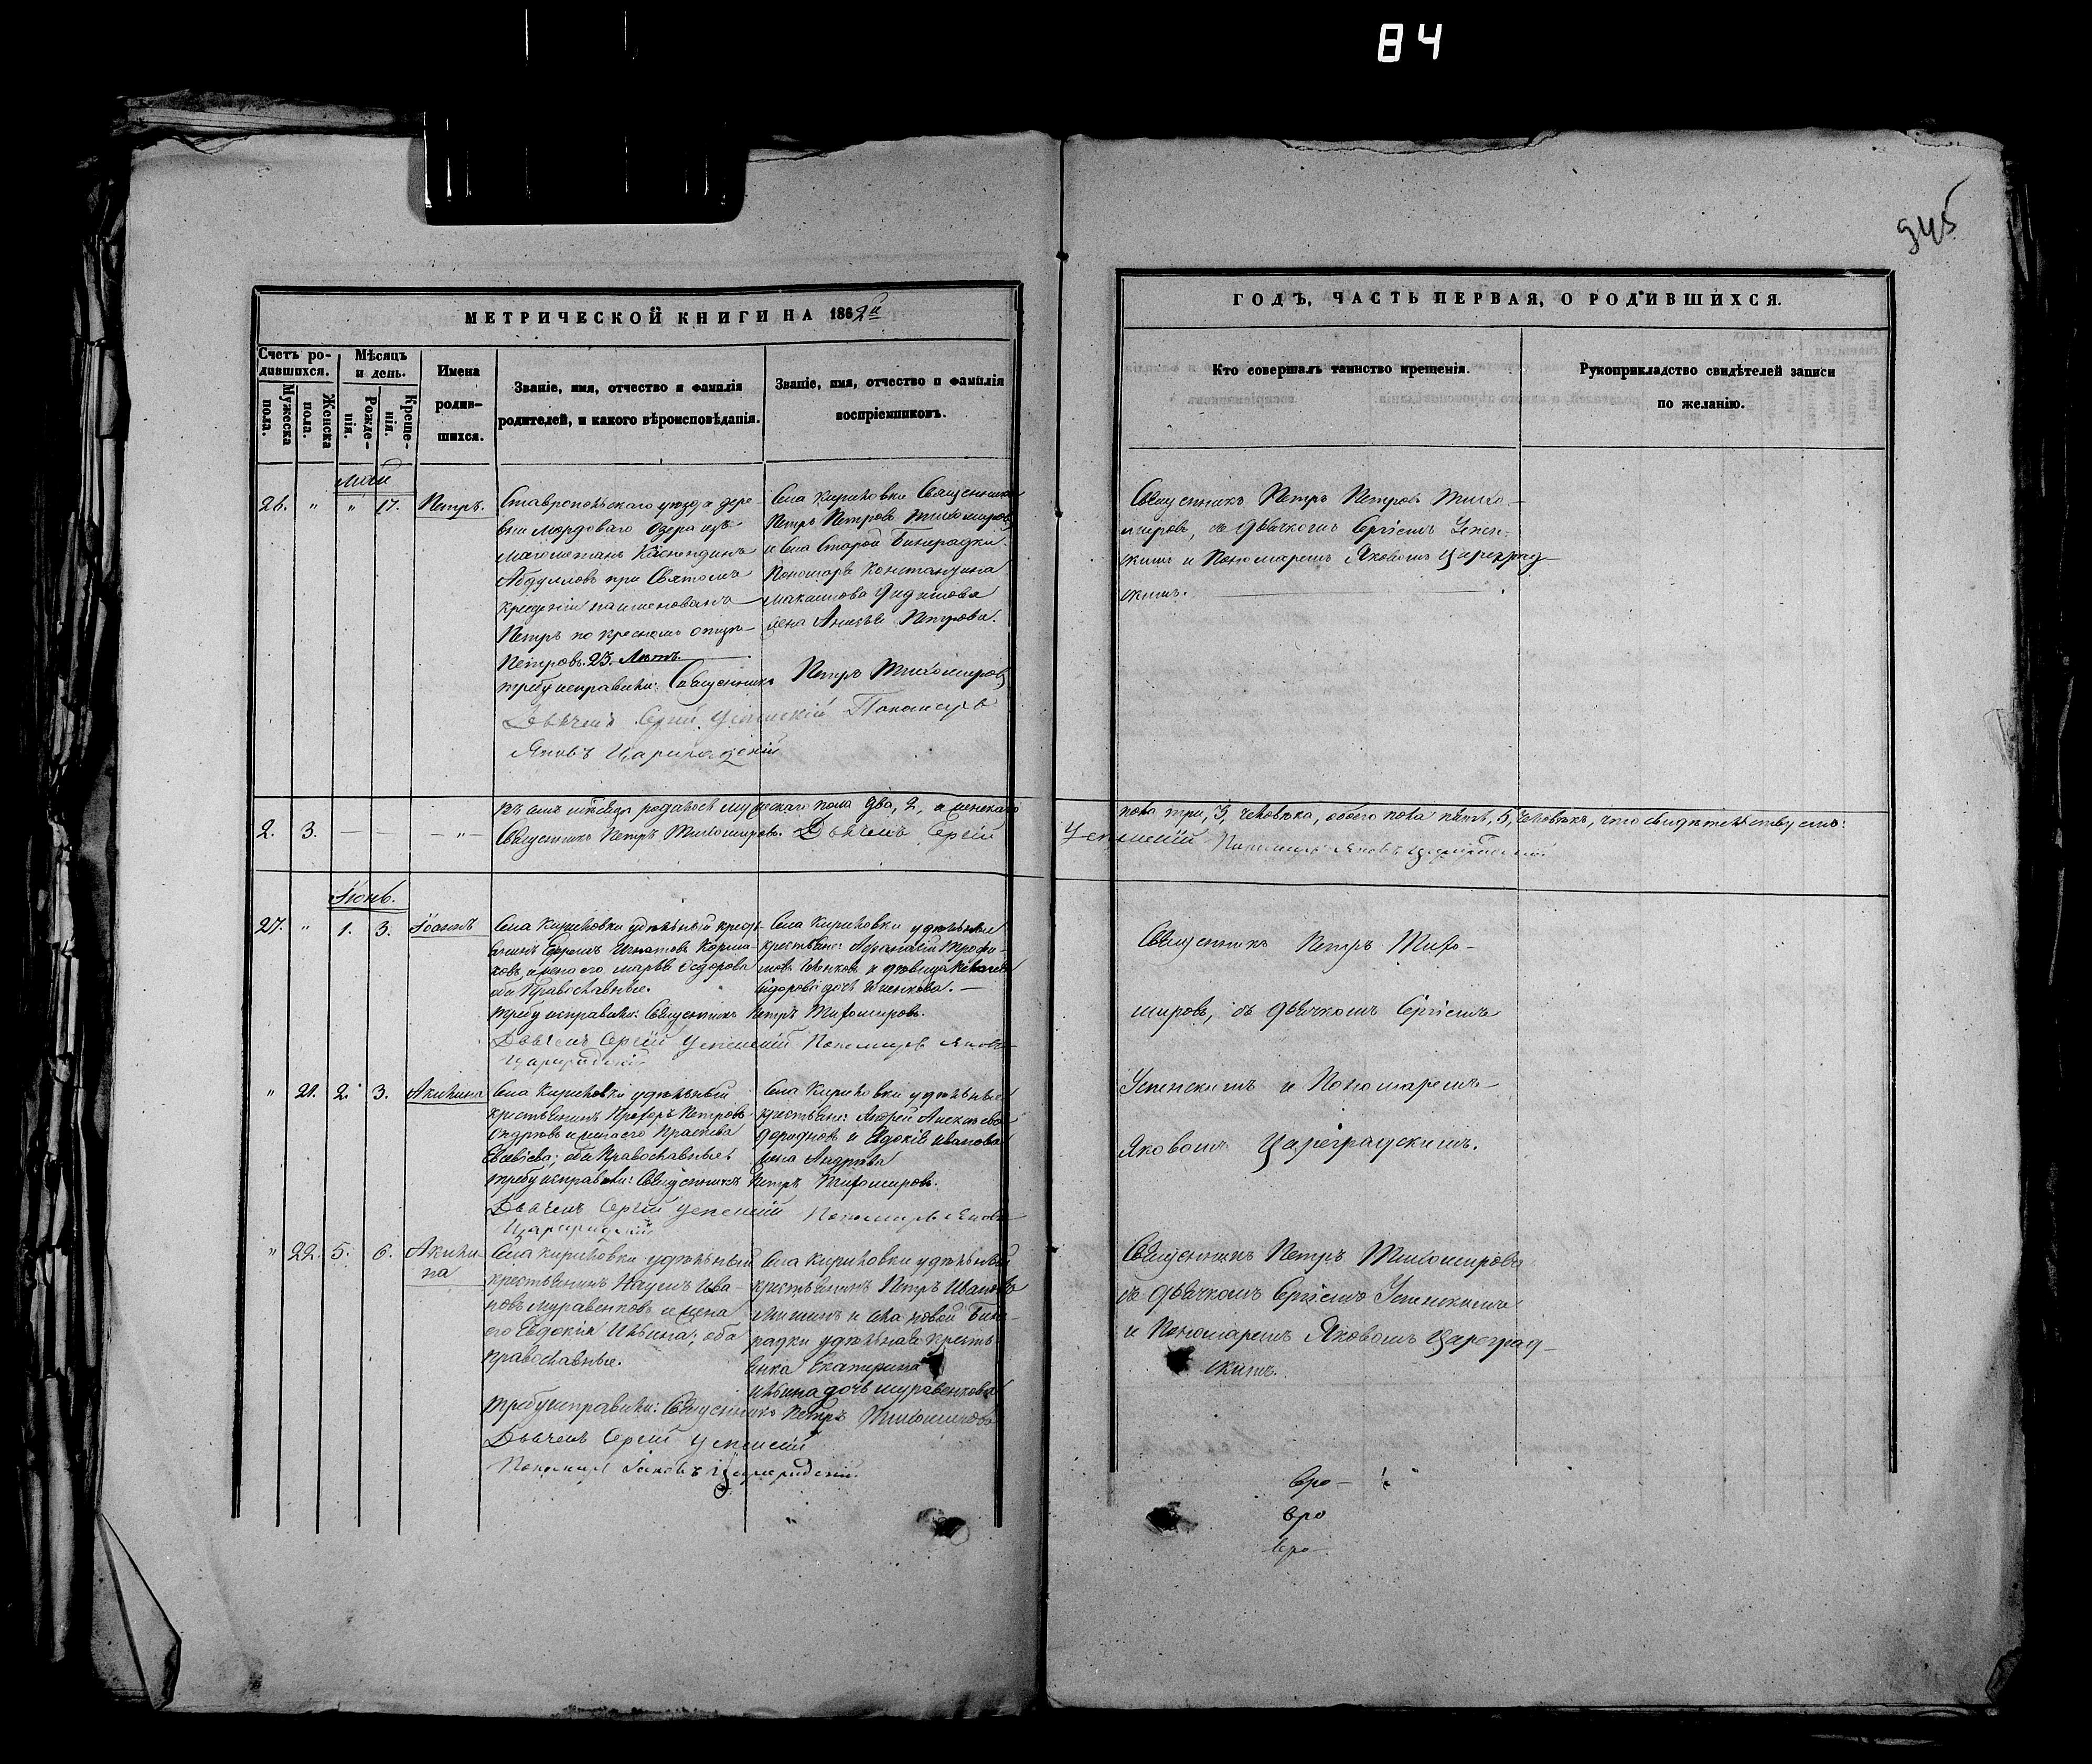 84
945
МЕТРИЧЕСКОЙ КНИГИ НА 1862й
ГОДЪ, ЧАСТЬ ПЕРВАЯ, О РОДИВШИХСЯ.
Счетъ ро-
дившихся.
Мужеска
пола.
Женска
пола.
Мѣсяцъ
и день.
Рожде-
нія.
Креще-
нія.
Имена
родив-
шихся.
Званіе, имя, отчество и фамилія
родителей, и какого вѣроисповѣданія.
Званіе, имя, отчество и фамилія
воспріемниковъ.
Кто совершалъ таинство крещенія.
Рукоприкладство свидѣтелей записи
по желанію.
Май
26. " " 17. Петръ.
Ставропольскаго уѣзда дере-
вни Мордоваго Озера изъ
магометанъ
Абдулловъ при Святомъ
крещеніи наименованъ
Петръ по крестномъ отцу
Петровъ. 23. Лѣтъ.
Села Кириловки Священникъ
Петръ Петровъ Тихомировъ
и Села Старой Бинарадки
Пономаря Константина
жена Петрова.
Требу исправили: Священникъ Петръ Тихомировъ
Дьячекъ Сергій Успенскій Пономарь
Яковъ Цареградскій
Священникъ Петръ Петровъ Тихо-
мировъ, съ дьячкомъ Сергіемъ Успен-
скимъ и Пономаремъ Яковомъ Цареград-
скимъ.
2. 3. — — — " —
родилось мужескаго пола два, 2, а женскаго
пола три, 3, человѣка, обоего пола пять, 5, человѣкъ, что свидѣтельствуемъ:
Священникъ Петръ Тихомировъ. Дьячекъ Сергій
Успенскій Пономарь Яковъ Цареградскій
Іюнь.
27. " 1. 3. Іоаннъ
Села Кириловки удѣльный крест-
янинъ Ефремъ Игнатовъ
и жена его Марья Ѳедорова
оба Православные.
Села Кириловки удѣльные
крестьяне: Афанасій Трофи-
мовъ и дѣвица
дочь
Требу исправили: Священникъ Петръ Тихомировъ.
Дьячекъ Сергій Успенскій Пономарь Яковъ
Цареградскій
Священникъ Петръ Тихо-
мировъ, съ дьячкомъ Сергіемъ
Успенскимъ и Пономаремъ
Яковомъ Цареградскимъ.
" 21. 2. 3. Акилина
Села Кириловки удѣльный
крестьянинъ Петровъ
и жена его
оба Православные
Села Кириловки удѣльные
крестьяне: Андрей Алексѣевъ
и Евдокія Иванова
жена Андреева
Требу исправили: Священникъ Петръ Тихомировъ.
Дьячекъ Сергій Успенскій Пономарь Яковъ
Цареградскій
" 22. 5. 6. Акили-
на
Села Кириловки удѣльный
крестьянинъ Наумъ Ива-
новъ Муравенковъ и жена
его Евдокія Ильина; оба
православные.
Села Кириловки удѣльный
крестьянинъ Петръ Ивановъ
и села Новой Бина-
радки удѣльная кресть-
янка Екатерина
Ильина дочь Муравенкова
Требу исправили: Священникъ Петръ Тихомировъ
Дьячекъ Сергій Успенскій
Пономарь Яковъ Цареградскій.
Священникъ Петръ Тихомировъ
съ дьячкомъ Сергіемъ Успенскимъ
и Пономаремъ Яковомъ Цареград-
скимъ.